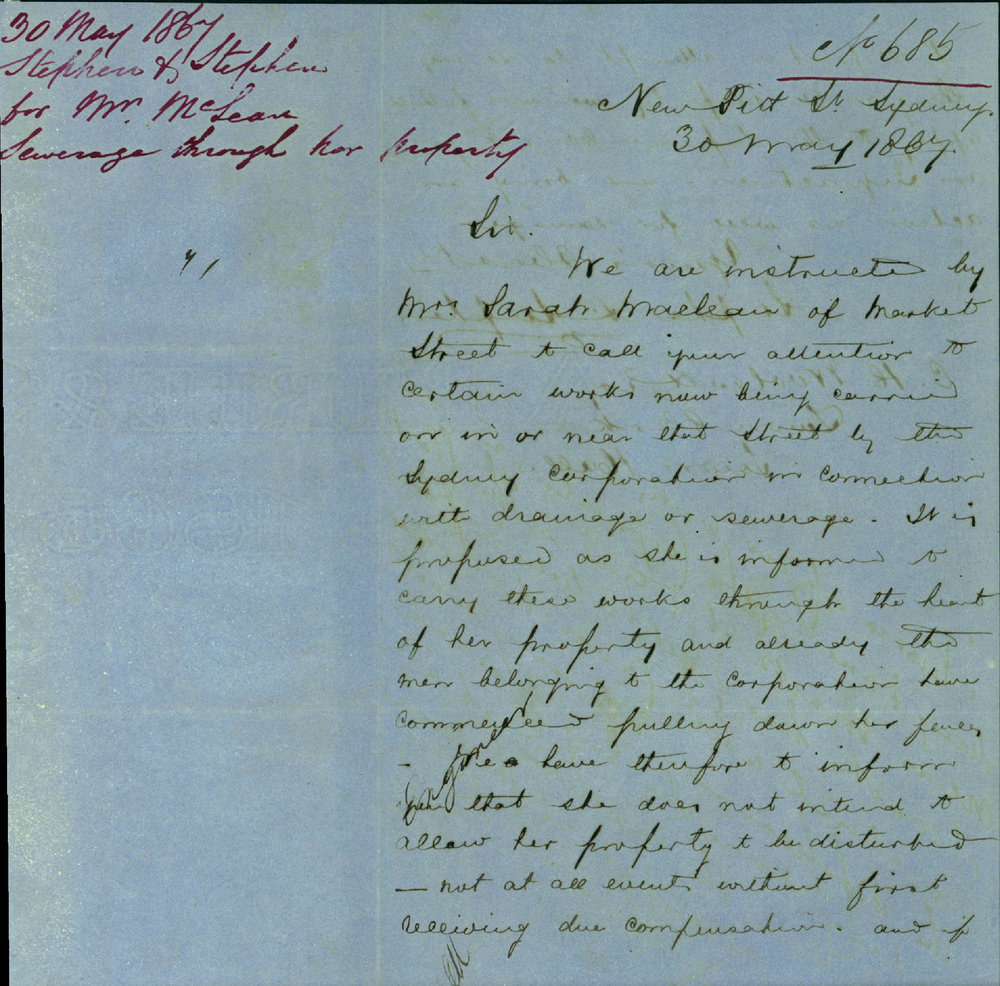 30 May 1867
Stephen & Stephen
for Mrs. McLean
Sewerage through her property
No 685
New Pitt St. Sydney.
30 May 1867.
Sir.
We are instructed by
Mrs. Sarah Maclean of Market
Street to call your attention to
certain works now being carried
on in or near that Street by the
Sydney Corporation in connection
with drainage or sewerage. It is
proposed as she is informed to
carry these works through the heart
of her property and already the
men belonging to the Corporation have
commenced pulling down her fences
- We have therefore to inform
you that she does not intend to
allow her property to be disturbed
— not at all events without first
receiving due compensation. and if